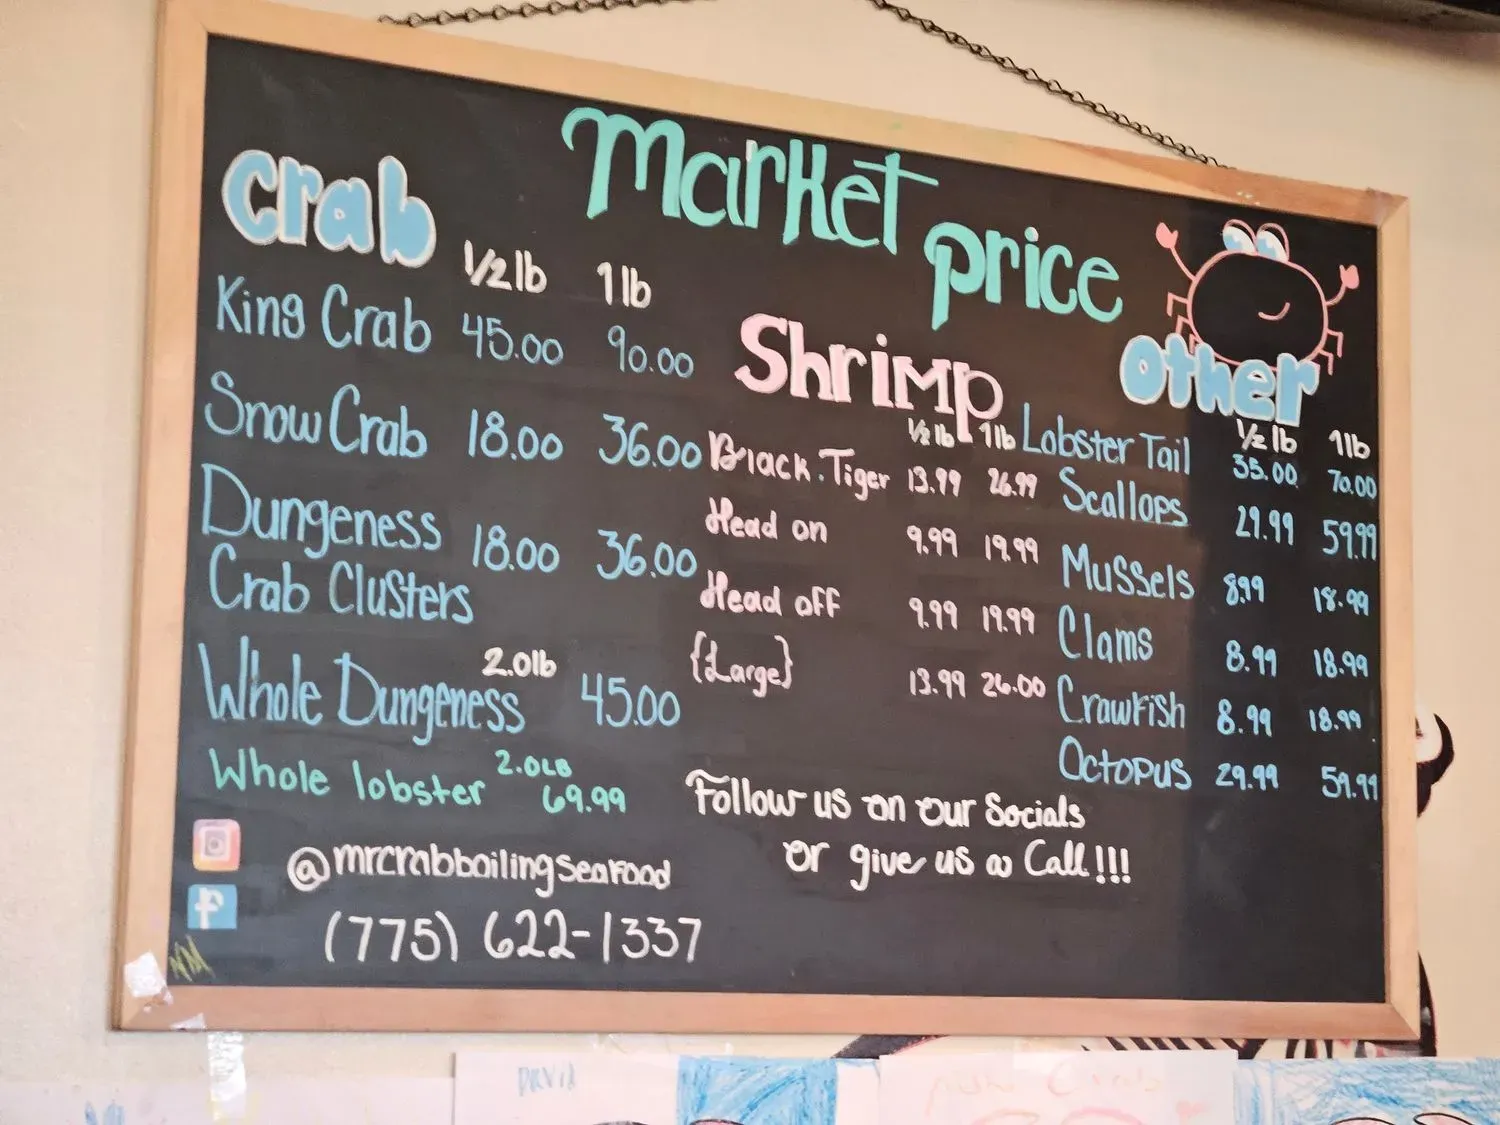 Market price
crab
1/2 lb 1 lb
King Crab 45.00 90.00
Snow Crab 18.00 36.00
Dungeness
Crab Clusters 18.00 36.00
2.0lb
Whole Dungeness 45.00
2.0LB
Whole lobster 69.99
@mrcrabboilingseafood
(775) 622-1337
NM
Shrimp
1/2 lb 1 lb
Black.Tiger 13.99 26.99
Head on 9.99 19.99
Head off 9.99 19.99
{Large} 13.99 26.00
Other
1/2 lb 1 lb
Lobster Tail 35.00 70.00
Scallops 29.99 59.99
Mussels 8.99 18.99
Clams 8.99 18.99
Crawfish 8.99 18.99
Octopus 29.99 59.99
Follow us on our Socials
or give us a Call!!!